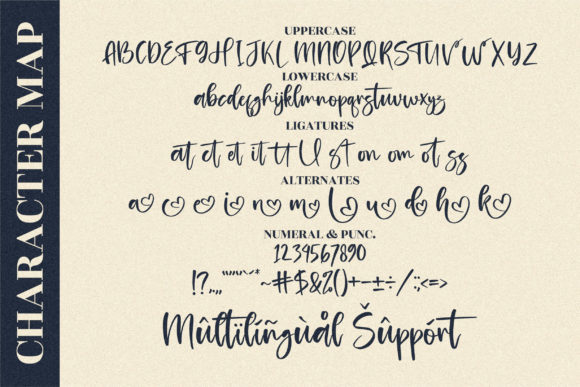 CHARACTER MAP
UPPERCASE
ABCDEFGHIJKLMNOPQRSTUVWXYZ
LOWERCASE
abcdefghijklmnopqrstuvwxyz
LIGATURES
at ct et it tt ll st on om ot ss
ALTERNATES
a c e i n m l u d h k
NUMERAL & PUNC.
1234567890
!?.,,,“”‘’“”*~#$&%()+-±÷/:;<=>
Mûltïlíñgùål Šûppórt